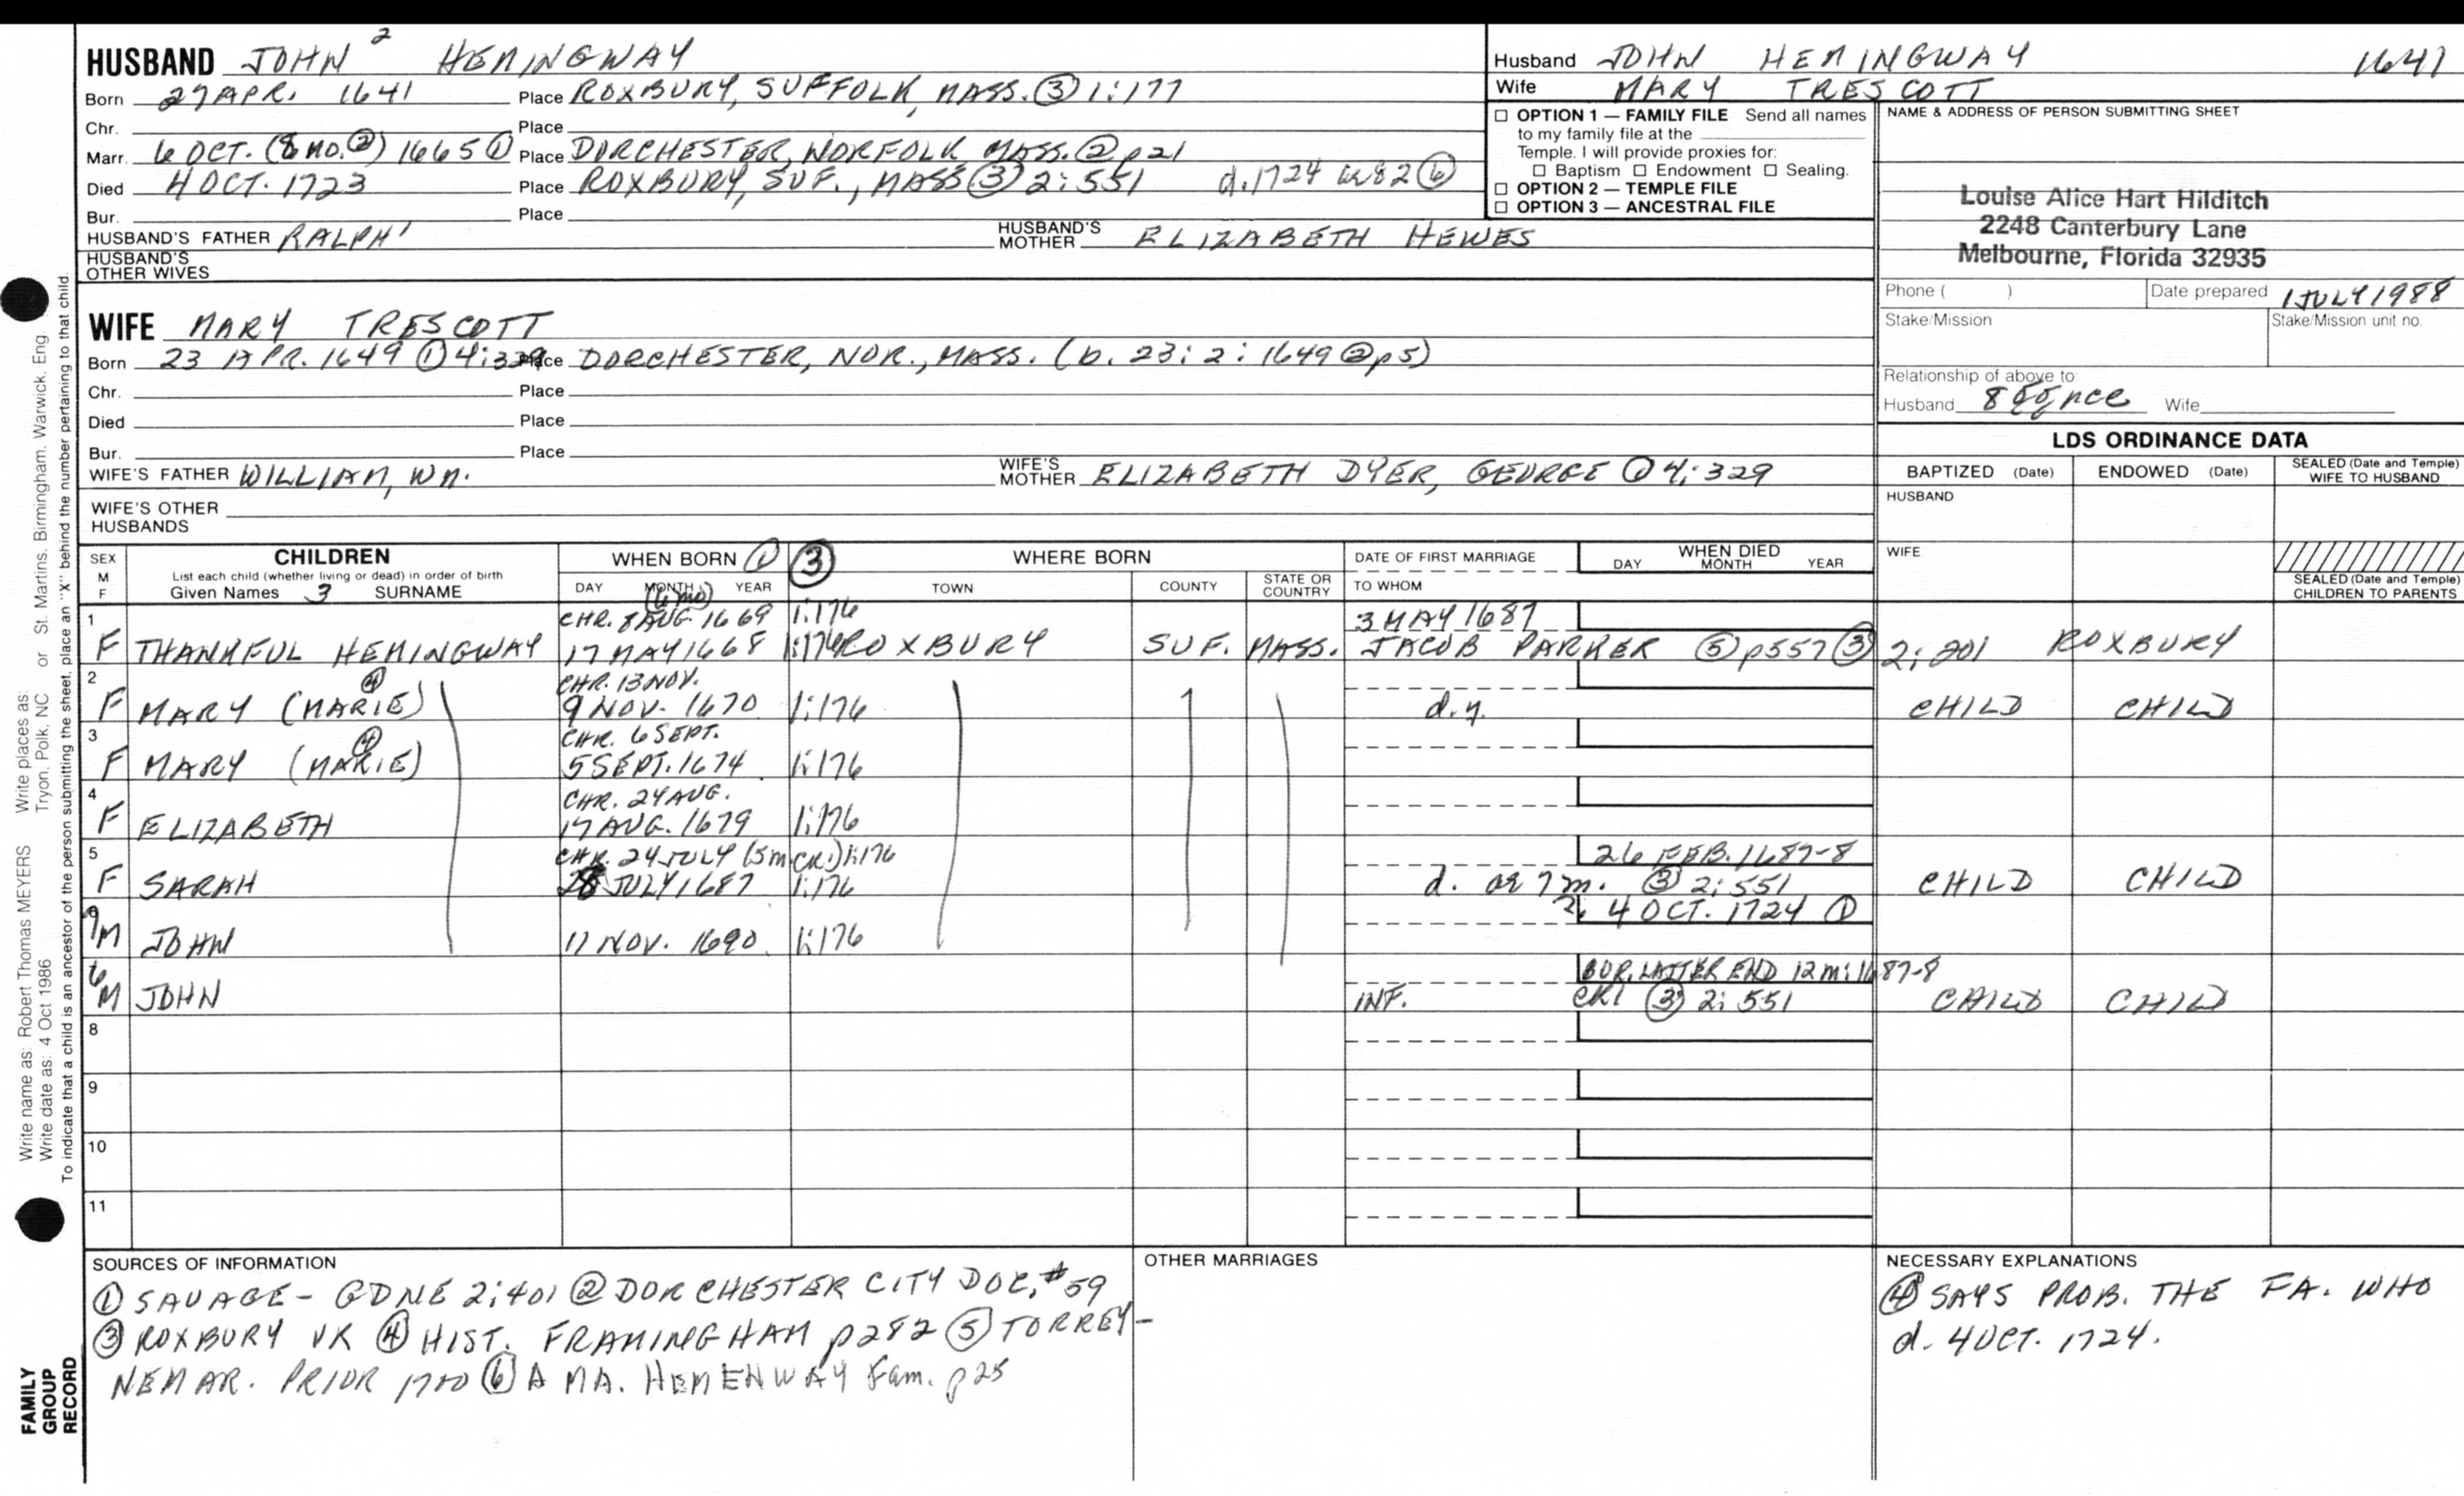 HUSBAND JOHN 2 HEMINGWAY
Born 27 APR. 1641 Place ROXBURY, SUFFOLK, MASS. ③ 1:177
Chr. Place
Marr. 6 OCT. (8 MO. ②) 1665 ① Place DORCHESTER, NORFOLK, MASS. ② p21
Died 4 OCT. 1723 Place ROXBURY, SUF., MASS ③ 2:551 d. 1724 ae 82 ⑥
Bur. Place
HUSBAND'S FATHER RALPH 1 HUSBAND'S MOTHER ELIZABETH HEWES
HUSBAND'S OTHER WIVES
Husband JOHN HEMINGWAY 1641
Wife MARY TRESCOTT
☐ OPTION 1 — FAMILY FILE Send all names
to my family file at the
Temple. I will provide proxies for:
☐ Baptism ☐ Endowment ☐ Sealing.
☐ OPTION 2 — TEMPLE FILE
☐ OPTION 3 — ANCESTRAL FILE
NAME & ADDRESS OF PERSON SUBMITTING SHEET
Louise Alice Hart Hilditch
2248 Canterbury Lane
Melbourne, Florida 32935
Phone ( ) Date prepared 1 JULY 1988
Stake/Mission Stake/Mission unit no.
Relationship of above to:
Husband 8 Wife
WIFE MARY TRESCOTT
Born 23 APR. 1649 ① 4:329 Place DORCHESTER, NOR., MASS. (b. 23:2:1649 ② p5)
Chr. Place
Died Place
Bur. Place
WIFE'S FATHER WILLIAM, WM. WIFE'S MOTHER ELIZABETH DYER, GEORGE ① 4:329
WIFE'S OTHER HUSBANDS
LDS ORDINANCE DATA
BAPTIZED (Date) ENDOWED (Date) SEALED (Date and Temple) WIFE TO HUSBAND
HUSBAND
WIFE
SEALED (Date and Temple) CHILDREN TO PARENTS
SEX M F CHILDREN WHEN BORN ① ③ WHERE BORN DATE OF FIRST MARRIAGE WHEN DIED
List each child (whether living or dead) in order of birth
Given Names 3 SURNAME DAY MONTH YEAR TOWN COUNTY STATE OR COUNTRY TO WHOM DAY MONTH YEAR
(6 mo)
1 CHR. 8 AUG. 1669 1:176 3 MAY 1687
F THANKFUL HEMINGWAY 17 MAY 1668 1:176 ROXBURY SUF. MASS. JACOB PARKER ⑤ p557 ③ 2:201 ROXBURY
2 ④ CHR. 13 NOV.
F MARY (MARIE) 9 NOV. 1670 1:176 d.y. CHILD CHILD
3 ④ CHR. 6 SEPT.
F MARY (MARIE) 5 SEPT. 1674 1:176
4 CHR. 24 AUG.
F ELIZABETH 17 AUG. 1679 1:176
5 CHR. 24 JULY (5m CR1) 1:176 26 FEB. 1687-8
F SARAH JULY 1687 1:176 d. ae 7 m. ③ 2:551 CHILD CHILD
7 4 OCT. 1724 ①
M JOHN 17 NOV. 1690 1:176
6 BUR. LATTER END 12 m: 1687-8
M JOHN INF. CR1 ③ 2:551 CHILD CHILD
8
9
10
11
SOURCES OF INFORMATION
① SAVAGE - GDNE 2:401 ② DORCHESTER CITY DOC. #59
③ ROXBURY VR ④ HIST. FRAMINGHAM p282 ⑤ TORREY-
NEMAR. PRIOR 1700 ⑥ A MA. HEMENWAY Fam. p25
OTHER MARRIAGES
NECESSARY EXPLANATIONS
④ SAYS PROB. THE FA. WHO
d. 4 OCT. 1724.
Write name as: Robert Thomas MEYERS Write places as: Tryon, Polk, NC or St. Martins, Birmingham, Warwick, Eng.
Write date as: 4 Oct 1986
To indicate that a child is an ancestor of the person submitting the sheet, place an "X" behind the number pertaining to that child.
FAMILY
GROUP
RECORD